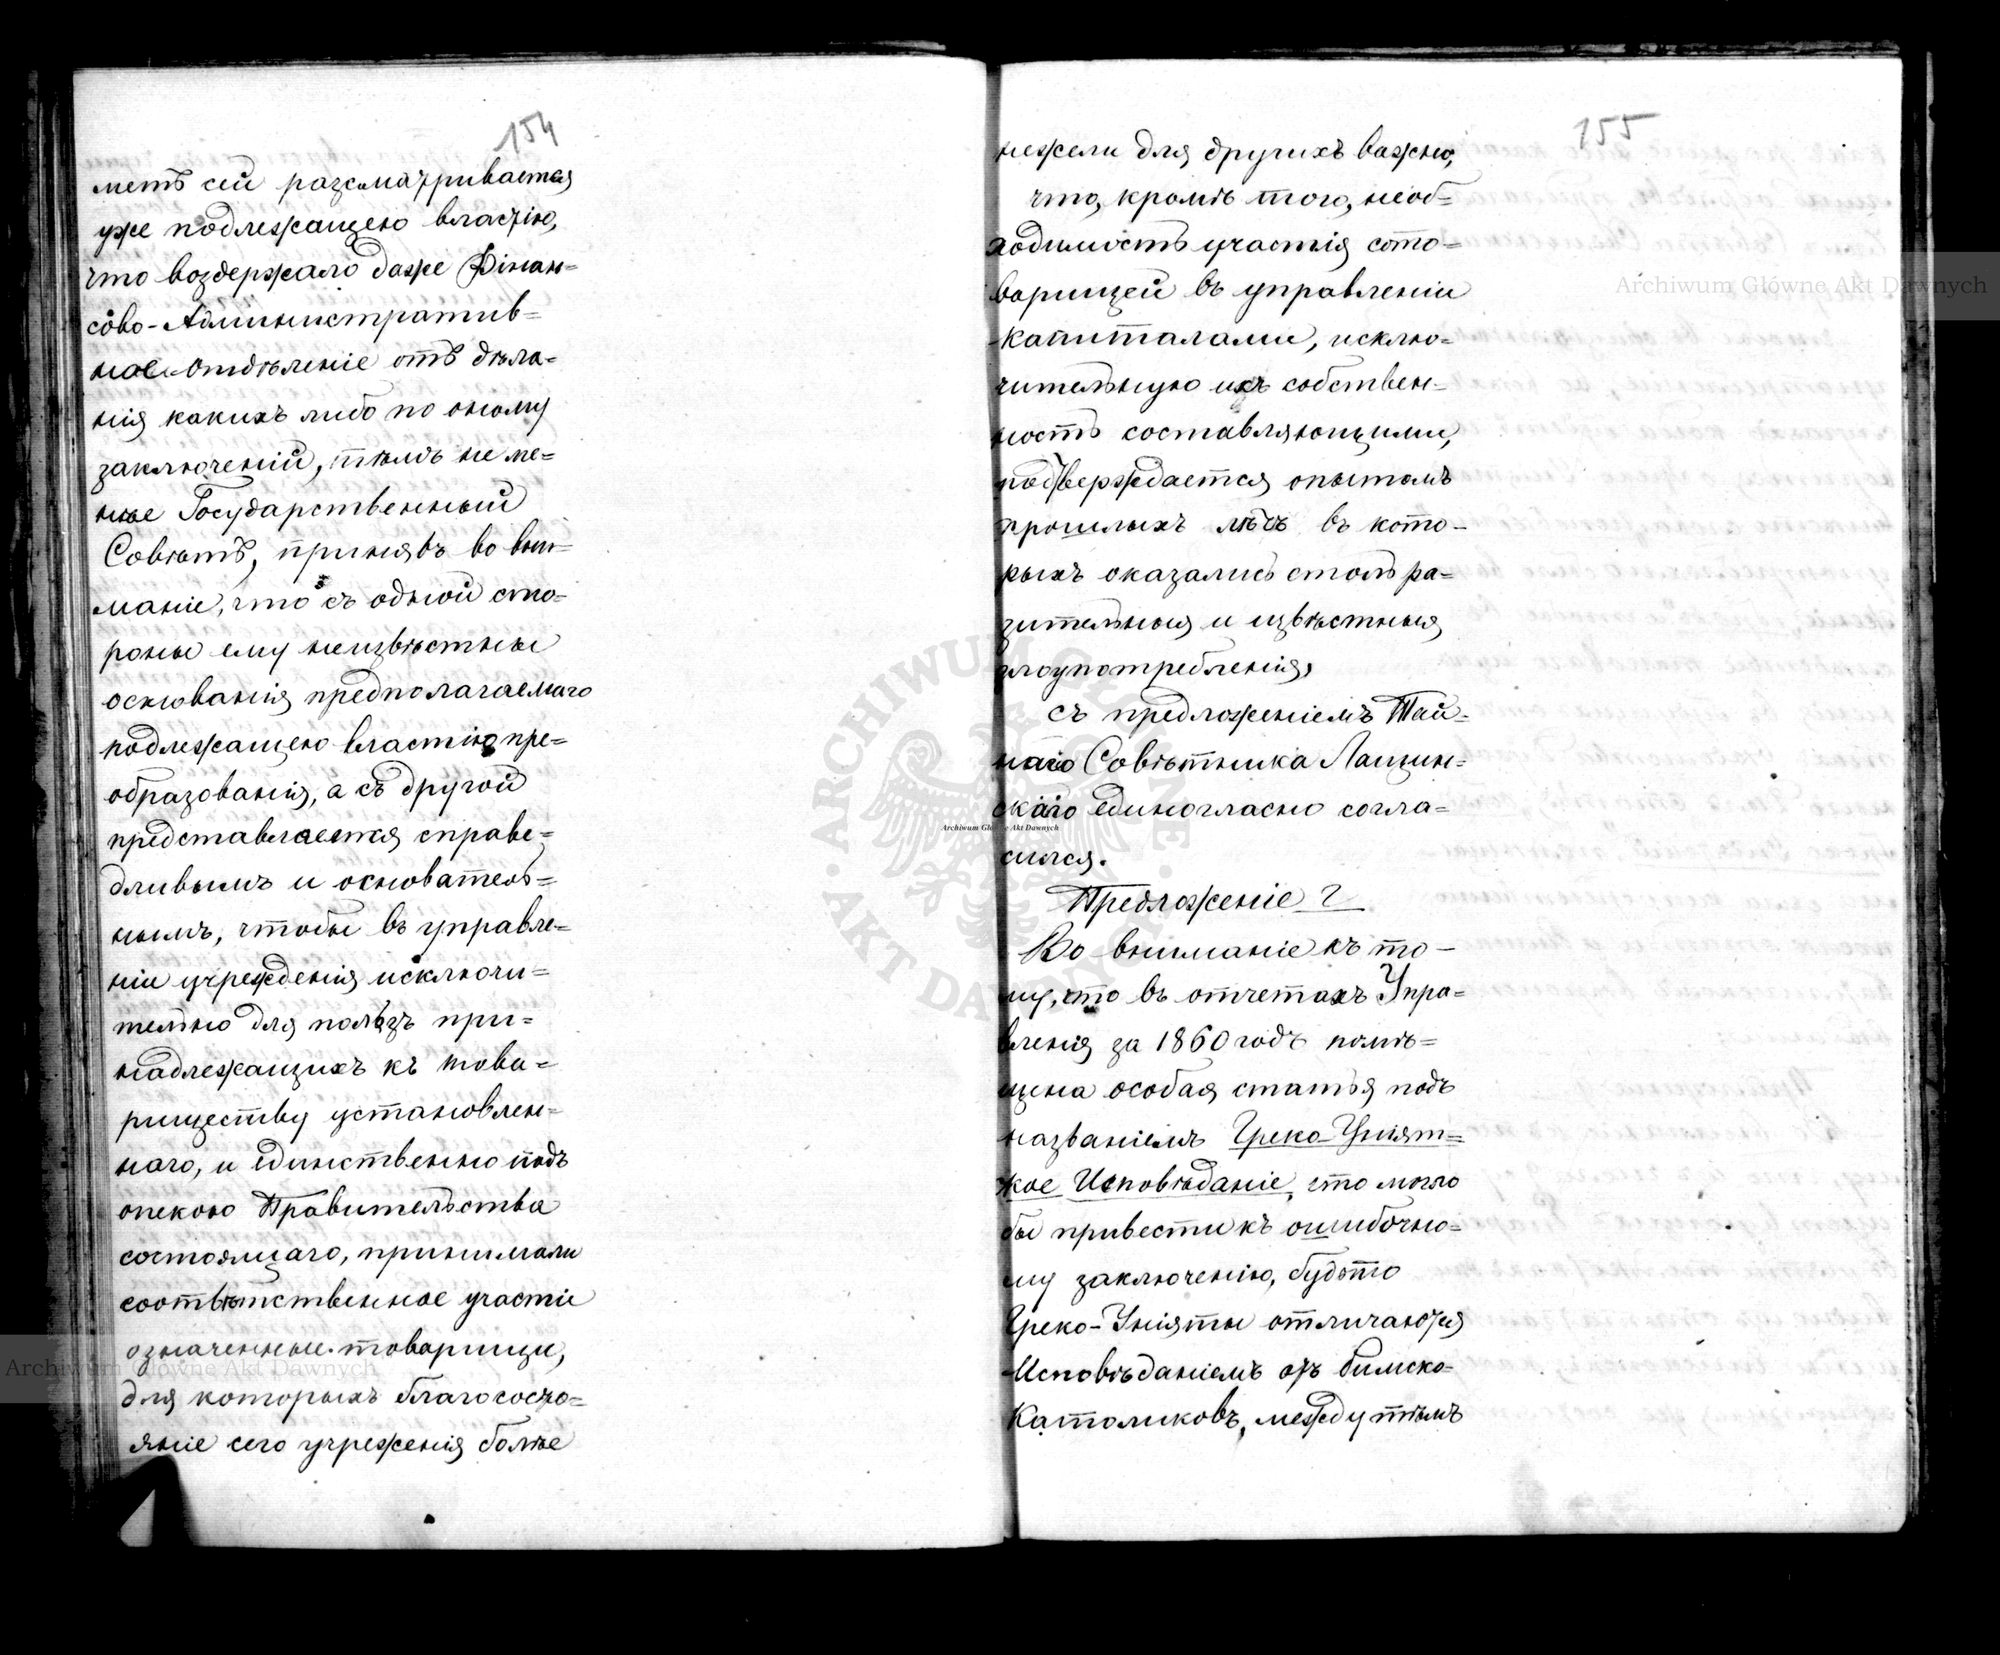 154
метъ сей разсматривается
уже подлежащею властію,
что воздержало даже Фінан=
сово-Административ=
ное Отдѣленіе отъ дѣла=
нія какихъ либо по оному
заключеній, тѣмъ не ме=
нѣе Государственный
Совѣтъ, принявъ во вни=
маніе, что съ одной сто=
роны ему неизвѣстны
основанія предполагаемаго
подлежащею властію пре=
образованія, а съ другой
представляется справе=
дливымъ и основатель=
нымъ, чтобы въ управле=
ніи учрежденія исключи=
тельно для пользъ при=
надлежащихъ къ това=
риществу установлен=
наго, и единственно подъ
опекою Правительства
состоящаго, принимали
соотвѣтственное участіе
означенные товарищи,
для которыхъ благосостоо=
яніе сего учреженія болѣе
155
нежели для другихъ важно,
что, кромѣ того, необ=
ходимость участія сото=
варищей въ управленіи
капиталами, исклю=
чительную ихъ собствен=
ность составляющими,
подтверждается опытомъ
прошлыхъ лѣтъ въ кото-
рыхъ оказались столь ра=
зительныя и извѣстныя
злоупотребленія,
съ предложеніемъ Тай=
наго Совѣтника Лащин=
скаго единогласно согла=
сился.
Предложеніе 2
Во вниманіе къ то-
му, что въ отчетахъ Упра=
вленія за 1860 годъ помѣ=
щена особая статья подъ
названіемъ Греко-Уніят=
кое Исповѣданіе, что могло
бы привести къ ошибочно=
му заключенію, будьто
Греко-Уніяты отличаются
Исповѣданіемъ отъ Римско=
Католиковъ, между тѣмъ
Archiwum Główne Akt Dawnych
Archiwum Główne Akt Dawnych
Archiwum Główne Akt Dawnych
ARCHIWUM GŁÓWNE
AKT DAWNYCH